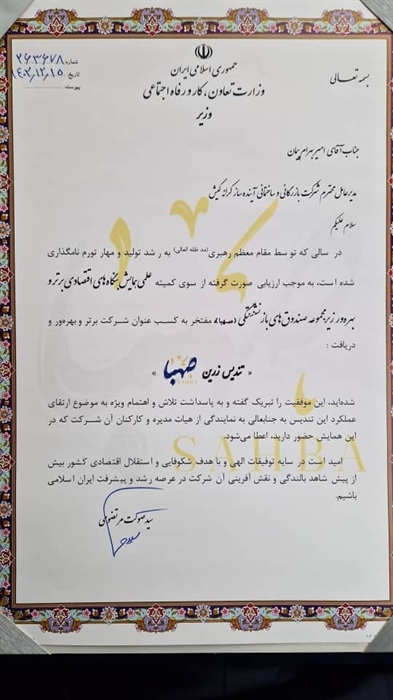 بسمه تعالی
جمهوری اسلامی ایران
وزارت تعاون، کار و رفاه اجتماعی
وزیر
شماره ۲۶۳۶۷۸
تاریخ ۴۰۲,۱۲,۱۵
پیوست
جناب آقای امیر بهرام پیمان
مدیرعامل محترم شرکت بازرگانی و ساختمانی آینده ساز کرانه کیش
سلام علیکم
در سالی که توسط مقام معظم رهبری(مد ظله العالی) به رشد تولید و مهار تورم نامگذاری
شده است، به موجب ارزیابی صورت گرفته از سوی کمیته علمی همایش بنگاه های اقتصادی برتر و
بهره ور زیرمجموعه صندوق های بازنشستگی (صهبا) مفتخر به کسب عنوان شرکت برتر و بهره‌ور و
دریافت :
« تندیس زرین صهبا »
شده‌اید، این موفقیت را تبریک گفته و به پاسداشت تلاش و اهتمام ویژه به موضوع ارتقای
عملکرد این تندیس به جنابعالی به نمایندگی از هیات مدیره و کارکنان آن شرکت که در
این همایش حضور دارید، اعطا می‌شود.
امید است در سایه توفیقات الهی و با هدف شکوفایی و استقلال اقتصادی کشور بیش
از پیش شاهد بالندگی و نقش آفرینی آن شرکت در عرصه رشد و پیشرفت ایران اسلامی
باشیم.
سید صولت مرتضوی
SAHBA